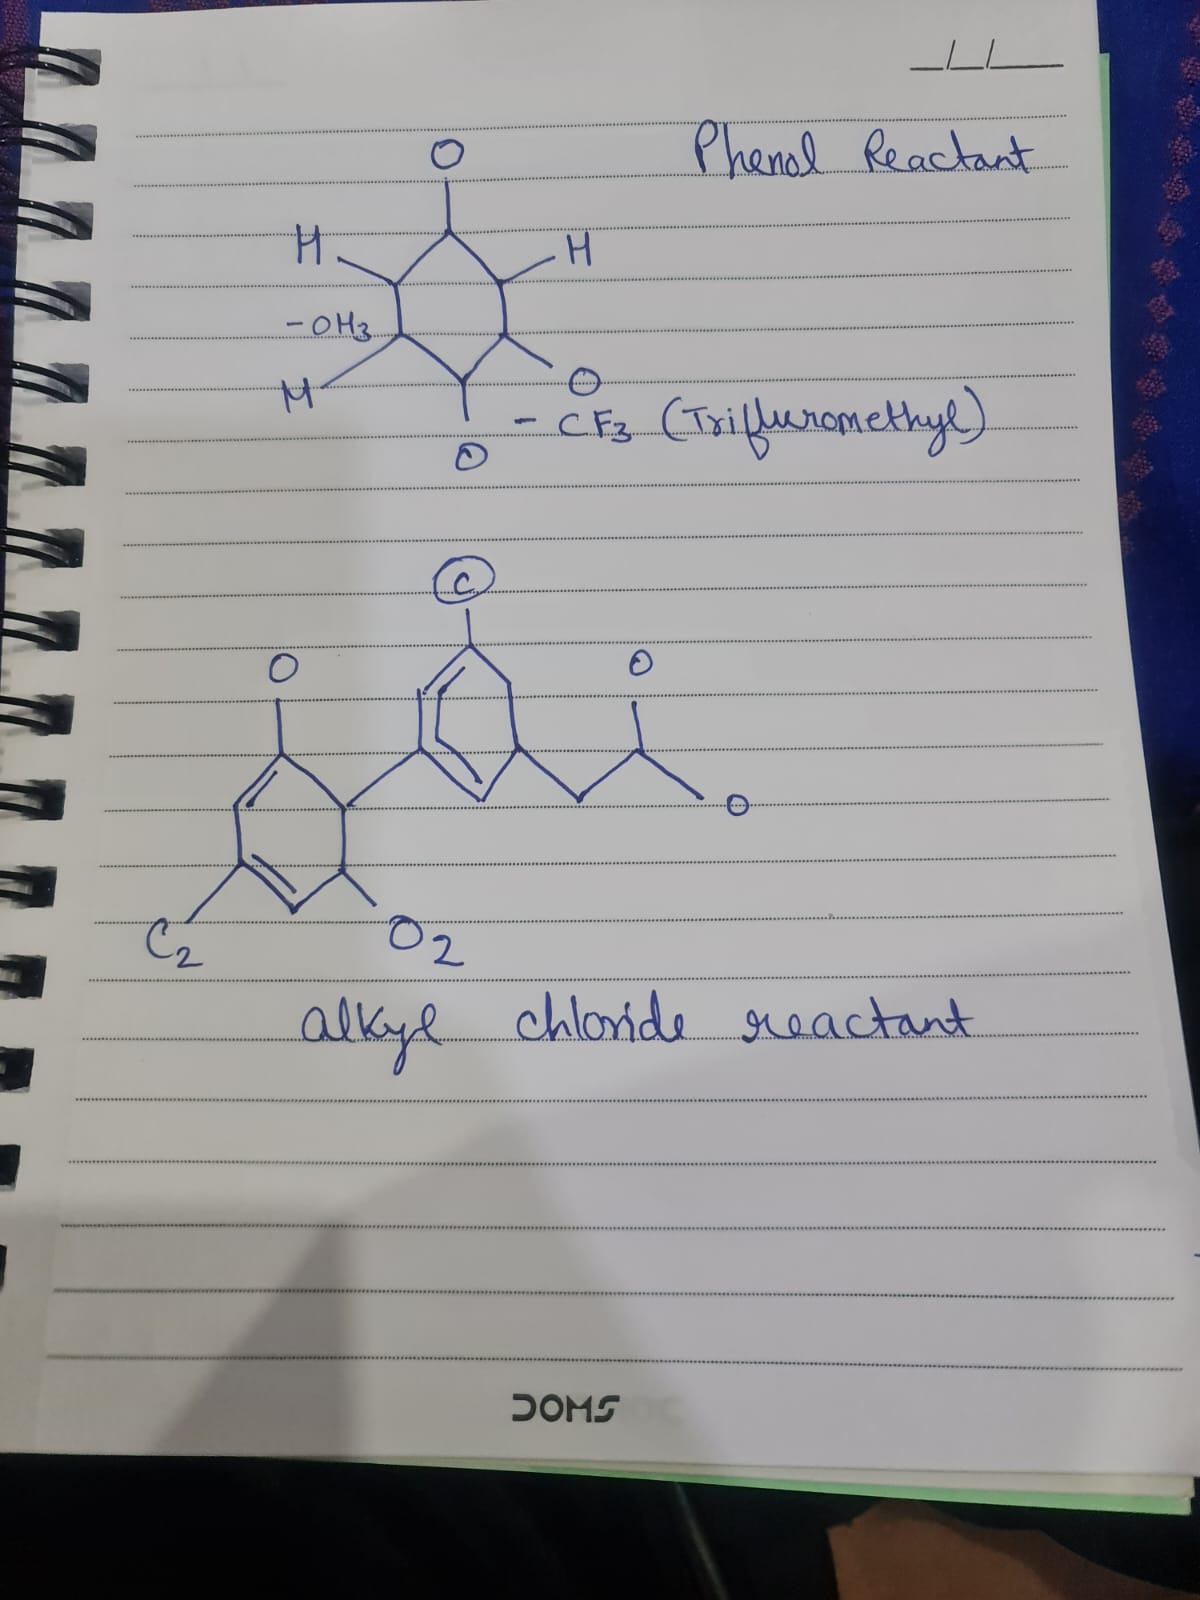 __/__/____
Phenol Reactant
O
H H
-OH3
H O
- CF3 (Trifluromethyl)
O
C
O O
O
C2 O2
alkyl chloride reactant
DOMS